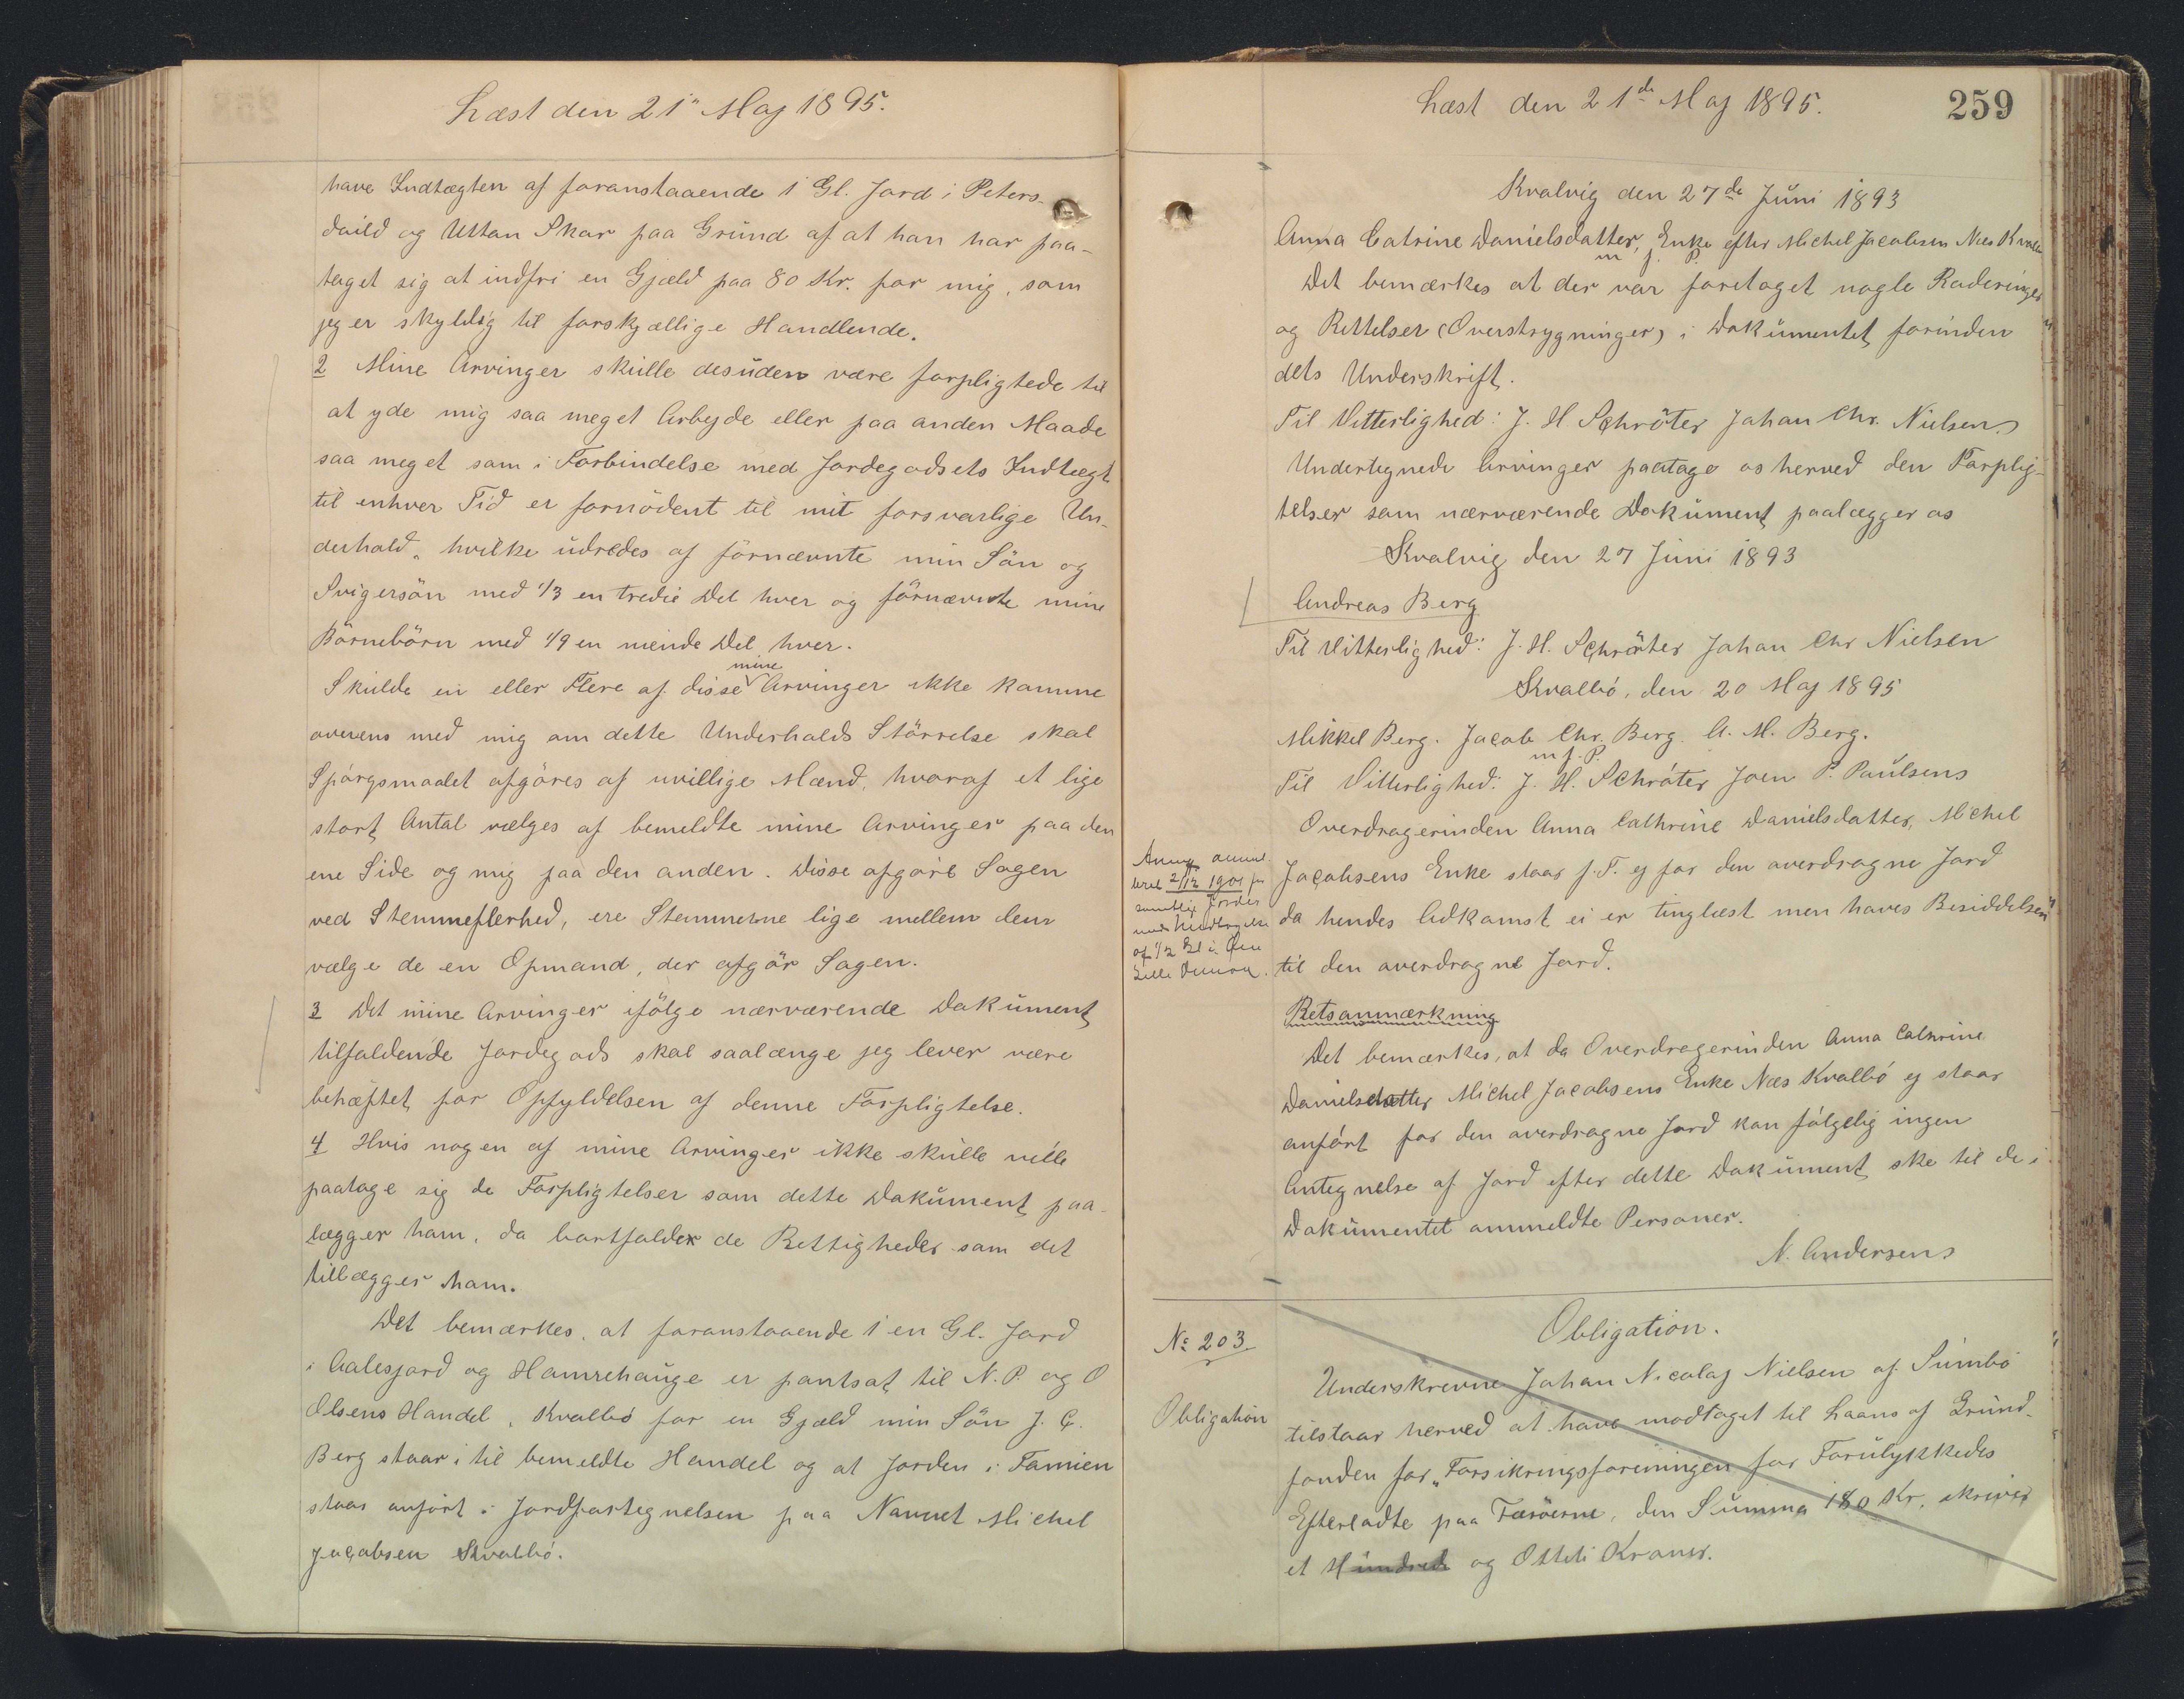 Læst den 21" Maj 1895.
have Indtægten af foranstaaende 1 Gl. Jord i Peters-
daild og Uttan Skar paa Grund af at han har paa-
taget sig at indfri en Gjæld paa 80 Kr. for mig, som
jeg er skyldig til forskjællige Handlende.
2 Mine Arvinger skulle desuden være forpligtede til
at yde mig saa meget Arbejde eller paa anden Maade
saa meget som i Forbindelse med Jordegodsets Indtægt
til enhver Tid er fornödent til mit forsvarlige Un-
derhold, hvilke udredes af förnævnte min Sön og
Svigersön med 1/3 en tredie Del hver og förnævnte mine
Börnebörn med 1/9 en niende Del hver.
Skulde en eller Flere af disse mine Arvinger ikke komme
overens med mig om dette Underholds Störrelse skal
Spörgsmaalet afgöres af uvillige Mænd, hvoraf et lige
stort Antal vælges af bemeldte mine Arvinger paa den
ene Side og mig paa den anden. Disse afgöre Sagen
ved Stemmeflerhed, ere Stemmerne lige mellem dem
vælge de en Opmand, der afgör Sagen.
3 Det mine Arvinger ifölge nærværende Dokument
tilfaldende Jordegods skal saalænge jeg lever være
behæftet for Opfyldelsen af denne Forpligtelse.
4 Hvis nogen af mine Arvinger ikke skulle ville
paatage sig de Forpligtelser som dette Dokument paa-
lægger ham, da bortfalder de Rettigheder som det
tillægger ham.
Det bemærkes, at foranstaaende 1 en Gl. Jord
i Aalesjord og Hamrehauge er pantsat til N. P. og O
Olsens Handel, Kvalbö for en Gjæld min Sön J. C.
Berg staar i til bemeldte Handel og at Jorden i Famien
staar anfört i Jordfortegnelsen paa Navnet Michel
Jacobsen Kvalbö.
Læst den 21de Maj 1895.
259
Kvalvig den 27de Juni 1893
Anna Catrine Danielsdatter, Enke efter Michel Jacobsen Næs Kvalbö
m f. P.
Det bemærkes at der var foretaget nogle Raderinger
og Rettelser (Overstrygninger) i Dokumentet forinden
dets Underskrift.
Til Vitterlighed: J. H. Schröter Johan Chr. Nielsen
Undertegnede Arvinger paatage os herved den Forplig-
telser som nærværende Dokument paalægger os
Kvalvig den 27 Juni 1893
Andreas Berg
Til Vitterlighed: J. H. Schröter Johan Chr Nielsen
Kvalbö, den 20 Maj 1895
Mikkel Berg. Jacob Chr. Berg. A. M. Berg.
m f. P.
Til Vitterlighed: J. H. Schröter Joen P. Paulsens
Overdragerinden Anna Cathrine Danielsdatter, Michel
Jacobsens Enke staar f. T. ej for den overdragne Jord
da hendes Adkomst ei er tinglæst men haves Besiddelsen
til den overdragne Jord.
2/12 1901
af 1/2 Gl i
Retsanmærkning
Det bemærkes, at da Overdragerinden Anna Cathrine
Danielsdatter Michel Jacobsens Enke Næs Kvalbö ej staar
anfört for den overdragne Jord kan fölgelig ingen
Antegnelse af Jord efter dette Dokument ske til de i
Dokumentet ommeldte Personer.
N. Andersens
No 203
Obligation
Obligation.
Underskrevne Johan Nicolaj Nielsen af Sumbö
tilstaar herved at have modtaget til Laans af Grund-
fonden for „Forsikringsforeningen for Forulykkedes
Efterladte paa Færöerne, den Summa 180 Kr. skriver
et Hundrede og Otteti Kroner.